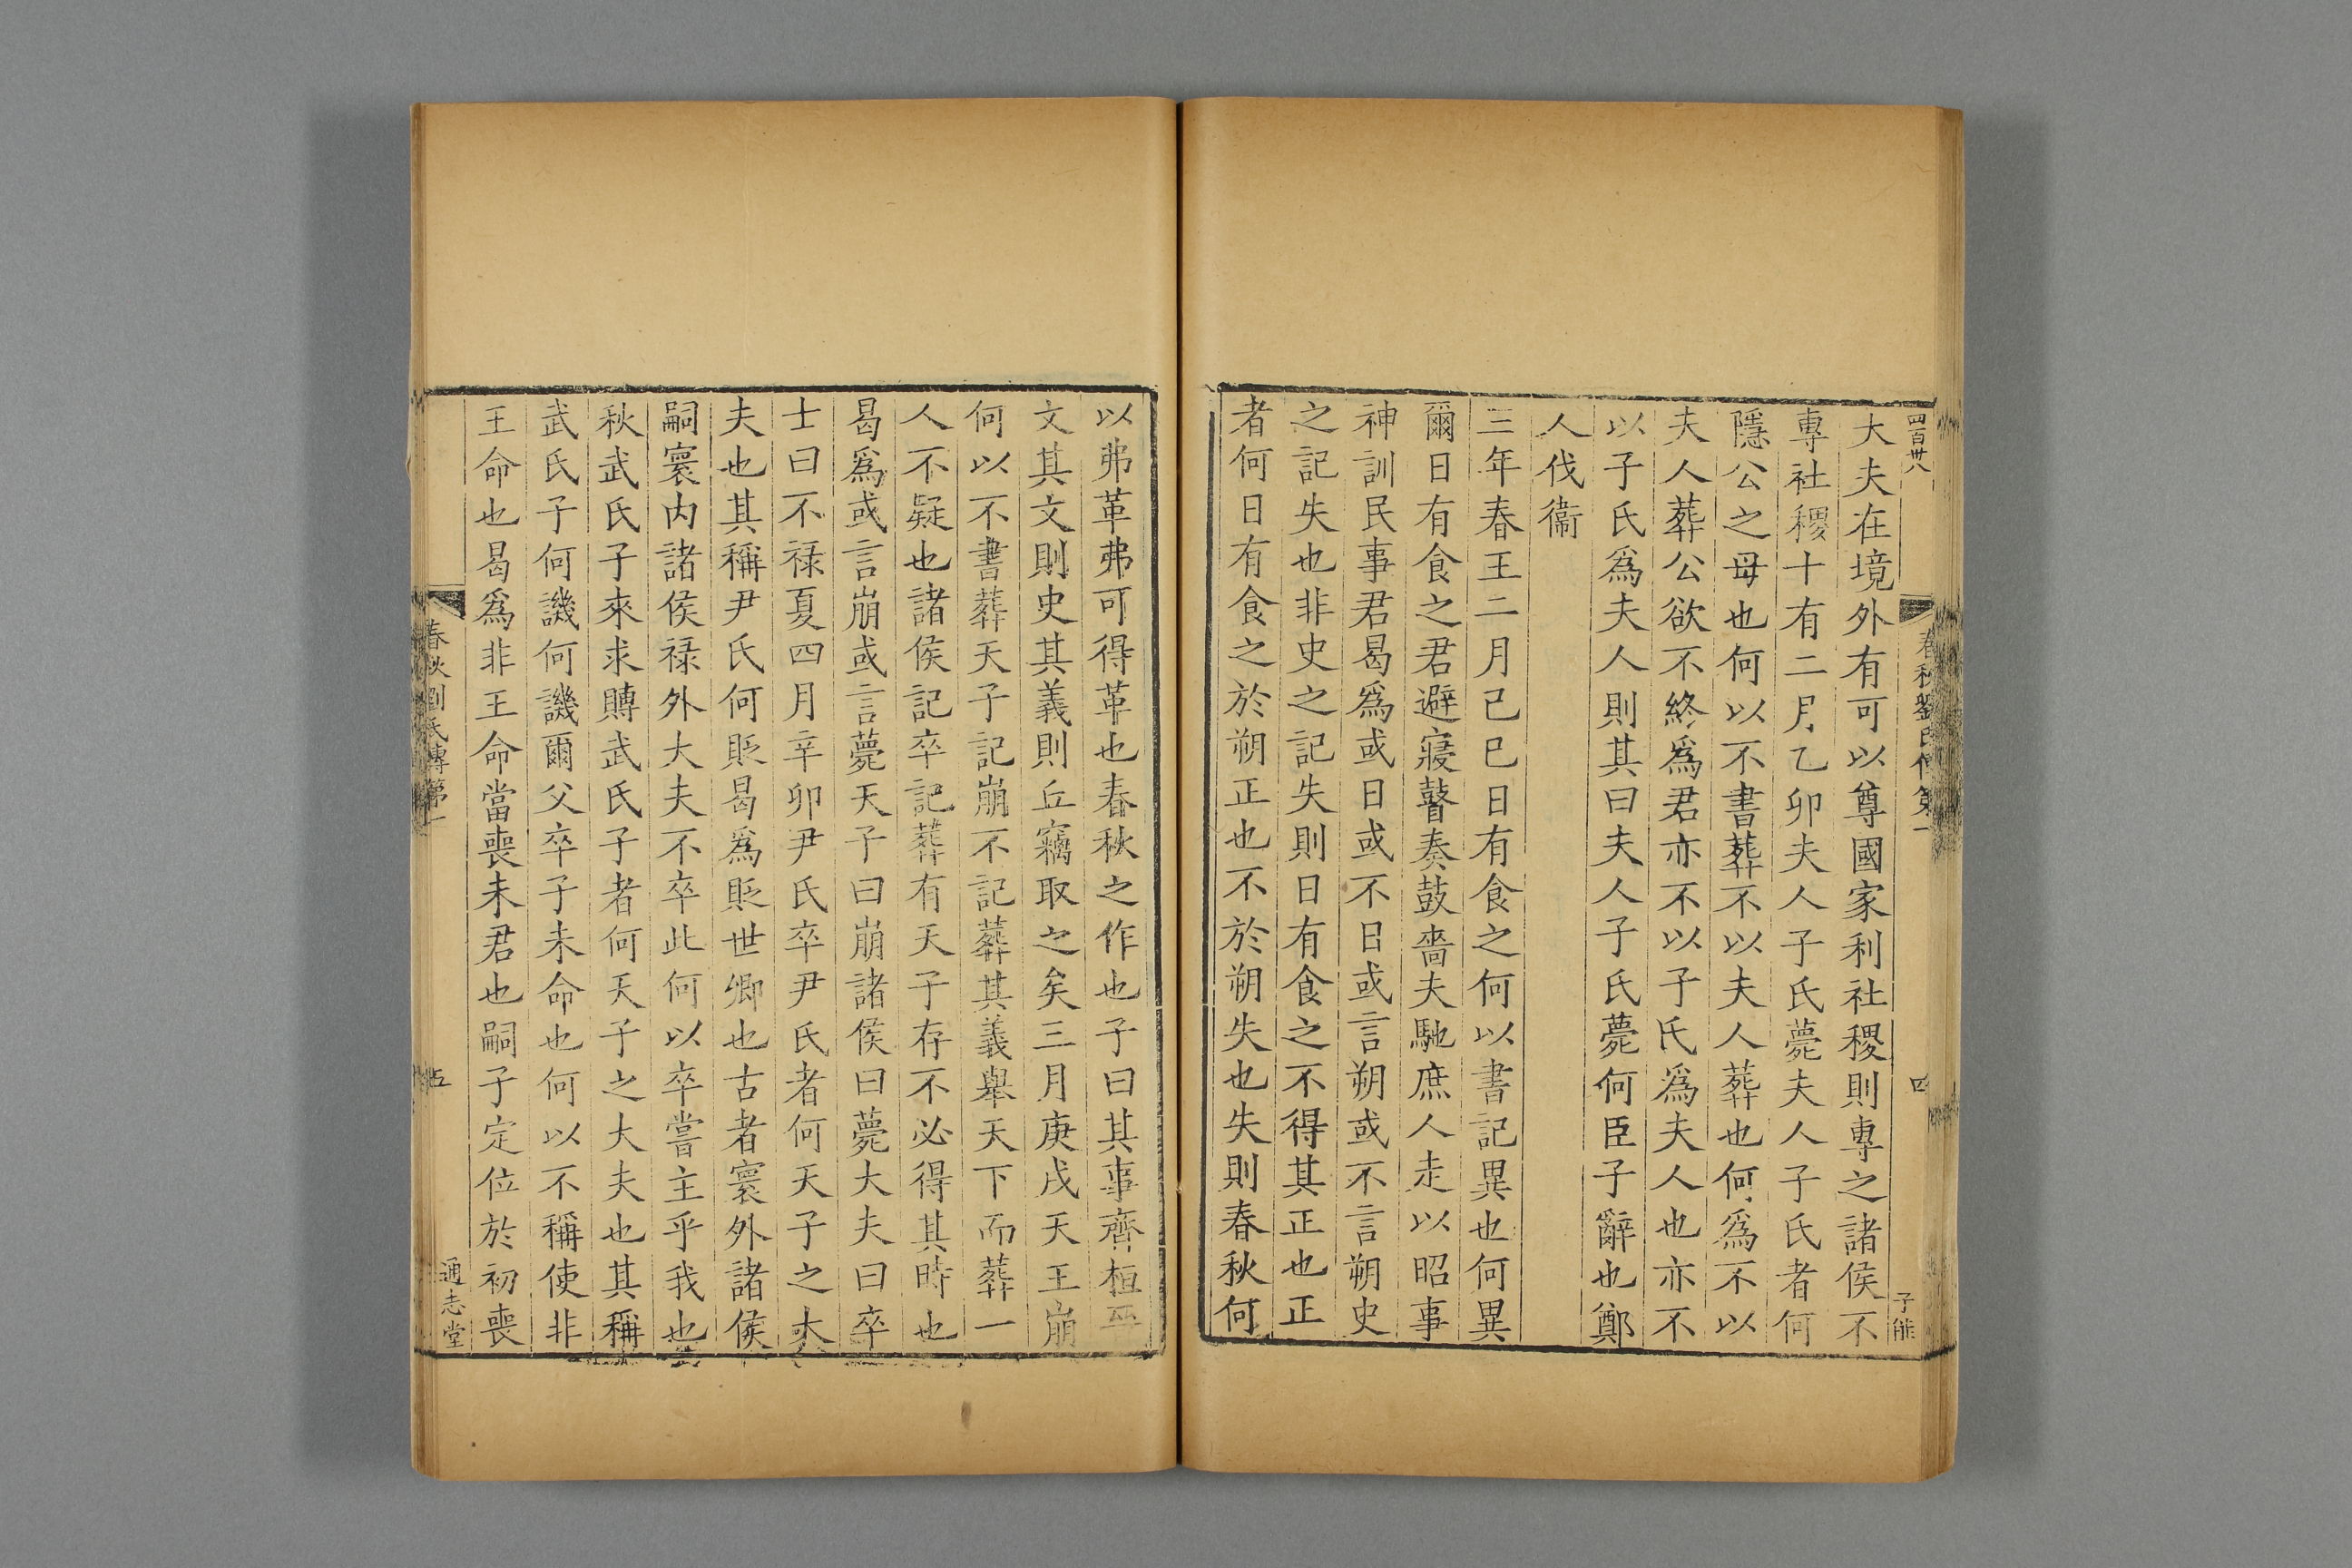 四百卅八
春秋劉氏傳第一
四
大夫在境外有可以尊國家利社稷則專之諸侯不
專社稷十有二月乙卯夫人子氏薨夫人子氏者何
隱公之母也何以不書葬不以夫人葬也何爲不以
夫人葬公欲不終爲君亦不以子氏爲夫人也亦不
以子氏爲夫人則其曰夫人子氏薨何臣子辭也鄭
人伐衞
三年春王二月己巳日有食之何以書記異也何異
爾日有食之君避寢瞽奏鼓嗇夫馳庶人走以昭事
神訓民事君曷爲或日或不日或言朔或不言朔史
之記失也非史之記失則日有食之不得其正也正
者何日有食之於朔正也不於朔失也失則春秋何
以弗革弗可得革也春秋之作也子曰其事齊桓
文其文則史其義則丘竊取之矣三月庚戌天王崩
何以不書葬天子記崩不記葬其義舉天下而葬一
人不疑也諸侯記卒記葬有天子存不必得其時也
曷爲或言崩或言薨天子曰崩諸侯曰薨大夫曰卒
士曰不禄夏四月辛卯尹氏卒尹氏者何天子之大
夫也其稱尹氏何貶曷爲貶世卿也古者寰外諸侯
嗣寰内諸侯禄外大夫不卒此何以卒嘗主乎我也
秋武氏子來求賻武氏子者何天子之大夫也其稱
武氏子何譏何譏爾父卒子未命也何以不稱使非
王命也曷爲非王命當喪未君也嗣子定位於初喪
春秋劉氏傳第一
五
通志堂